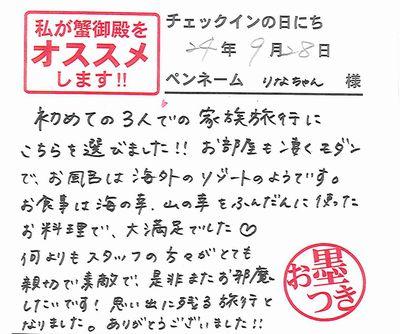 私が蟹御殿を
オススメ
します!!
チェックインの日にち
24年9月28日
ペンネーム りなちゃん 様
初めての3人での家族旅行に
こちらを選びました!! お部屋も凄くモダン
で、お風呂は海外のリゾートのようです。
お食事は海の幸、山の幸をふんだんに使った
お料理で、大満足でした♡
何よりもスタッフの方々がとても
親切で素敵で、是非またお邪魔
したいです! 思い出に残る旅行と
なりました。ありがとうございました!!
お墨つき